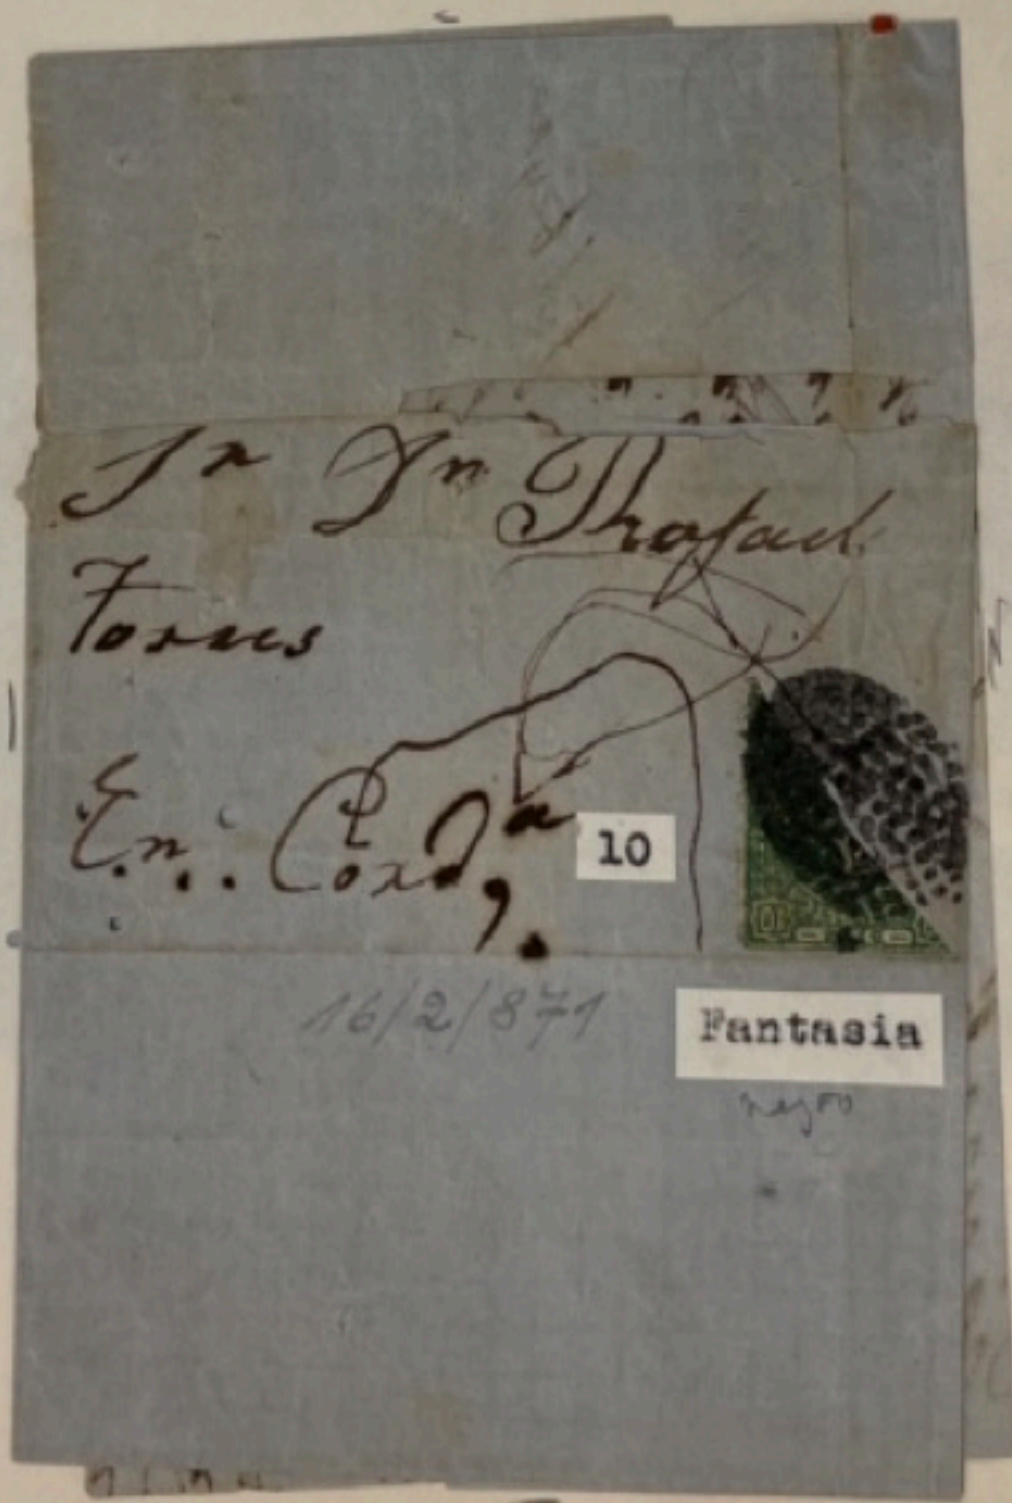 Sr Dn Rhafael
Torres
En.. Cordª,
10
16/2/871
Fantasia
negro